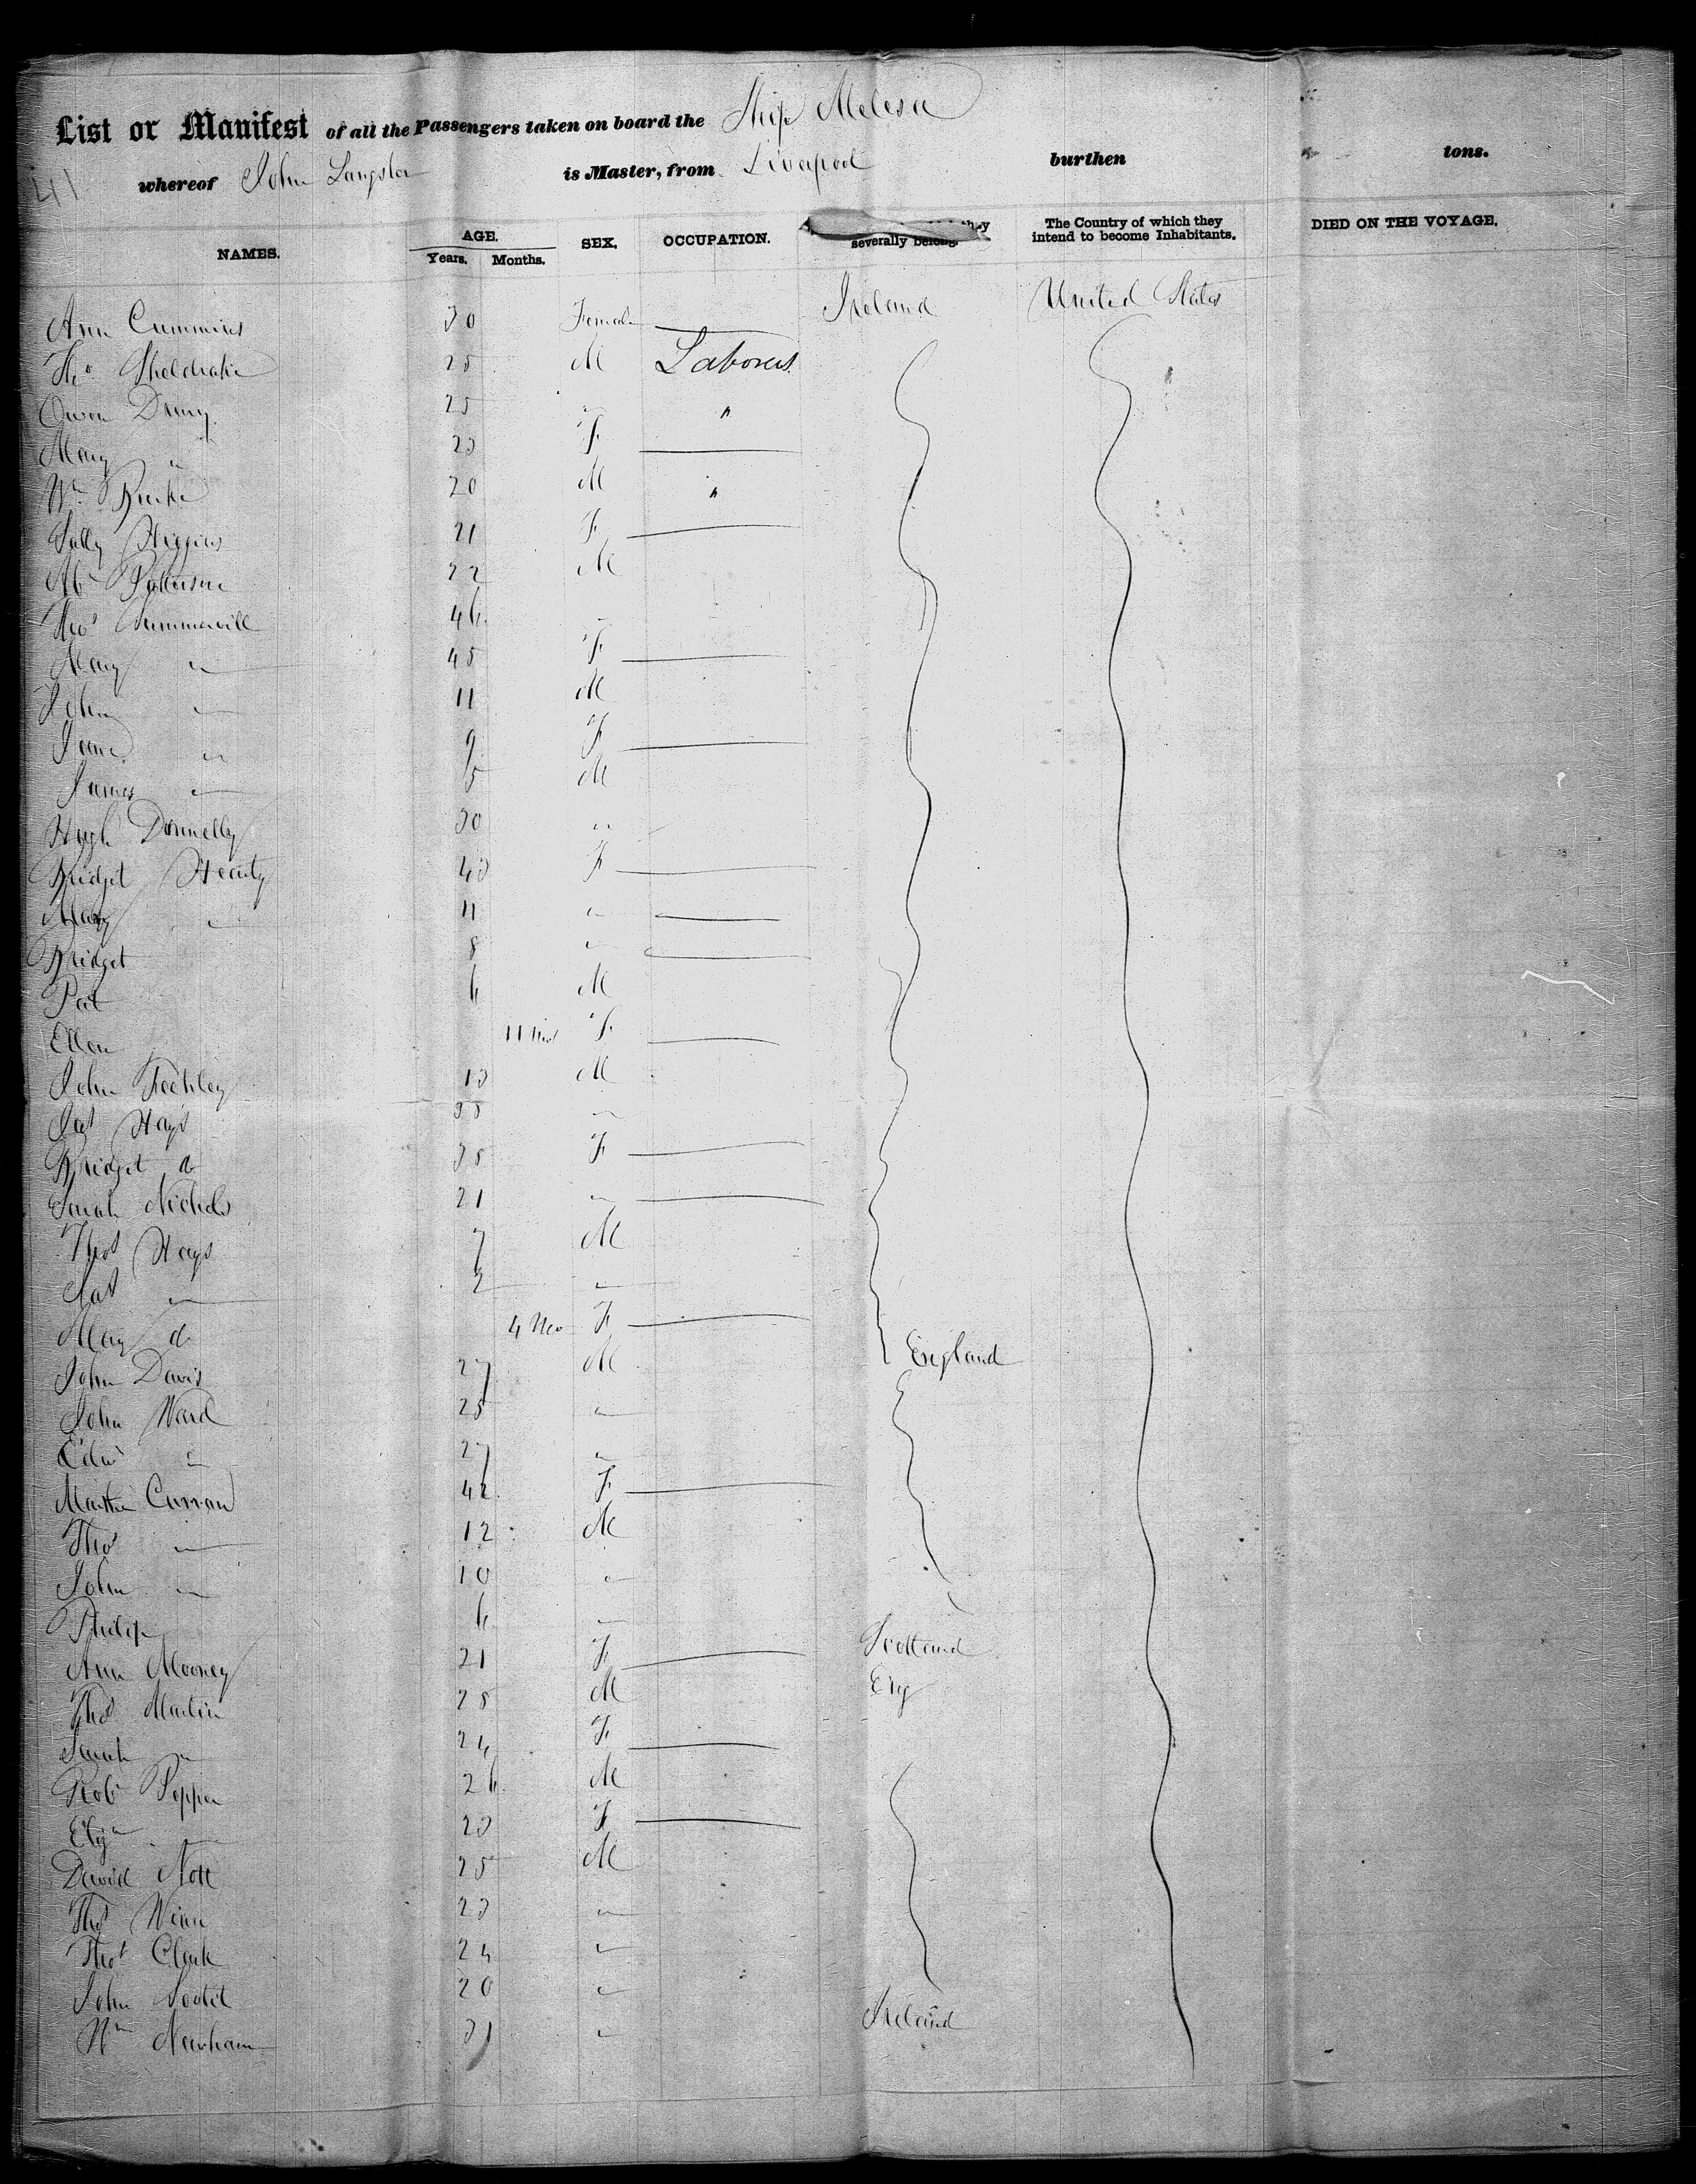 List or Manifest of all the Passengers taken on board the Ship Melesa
41 whereof John Langster is Master, from Liverpool burthen tons.
NAMES. AGE. Years. Months. SEX. OCCUPATION. they severally belong. The Country of which they intend to become Inhabitants. DIED ON THE VOYAGE.
Ann Cummins 30 Female — Ireland United States
Tho Sheldrake 25 M Laborers
Owen Drury 25 " "
Mary " 23 F —
Wm Burke 20 M "
Sally Higgins 21 F —
Patterson 22 M
Thos Summerville 46 "
Mary " 45 F —
John " 11 M
Jane " 9 F —
James " 5 M
Hugh Donnelly 30 "
Bridget Hearty 43 F —
Mary " 11 " —
Bridget 8 " —
Pat 6 M
Ellen 11 Mos F —
John 13 M
Pat Hays 35 "
Bridget do 35 F —
Sarah Nichols 21 " —
Thos Hays 7 M
Pat " 2 "
Mary do 4 Mo F —
John Davis 27 M England
John Ward 25 "
Edwd " 27 "
Martha Curran 42 F —
Thos " 12 M
John " 10 "
Philip 6 "
Ann Mooney 21 F — Scotland
Thos Martin 25 M Eng
Sarah " 24 F —
Robt Pepper 26 M
Eliza " 23 F —
David Nott 25 M
Thos Winn 23 "
Thos Clark 24 "
John 20 "
Wm Newham 31 " Ireland